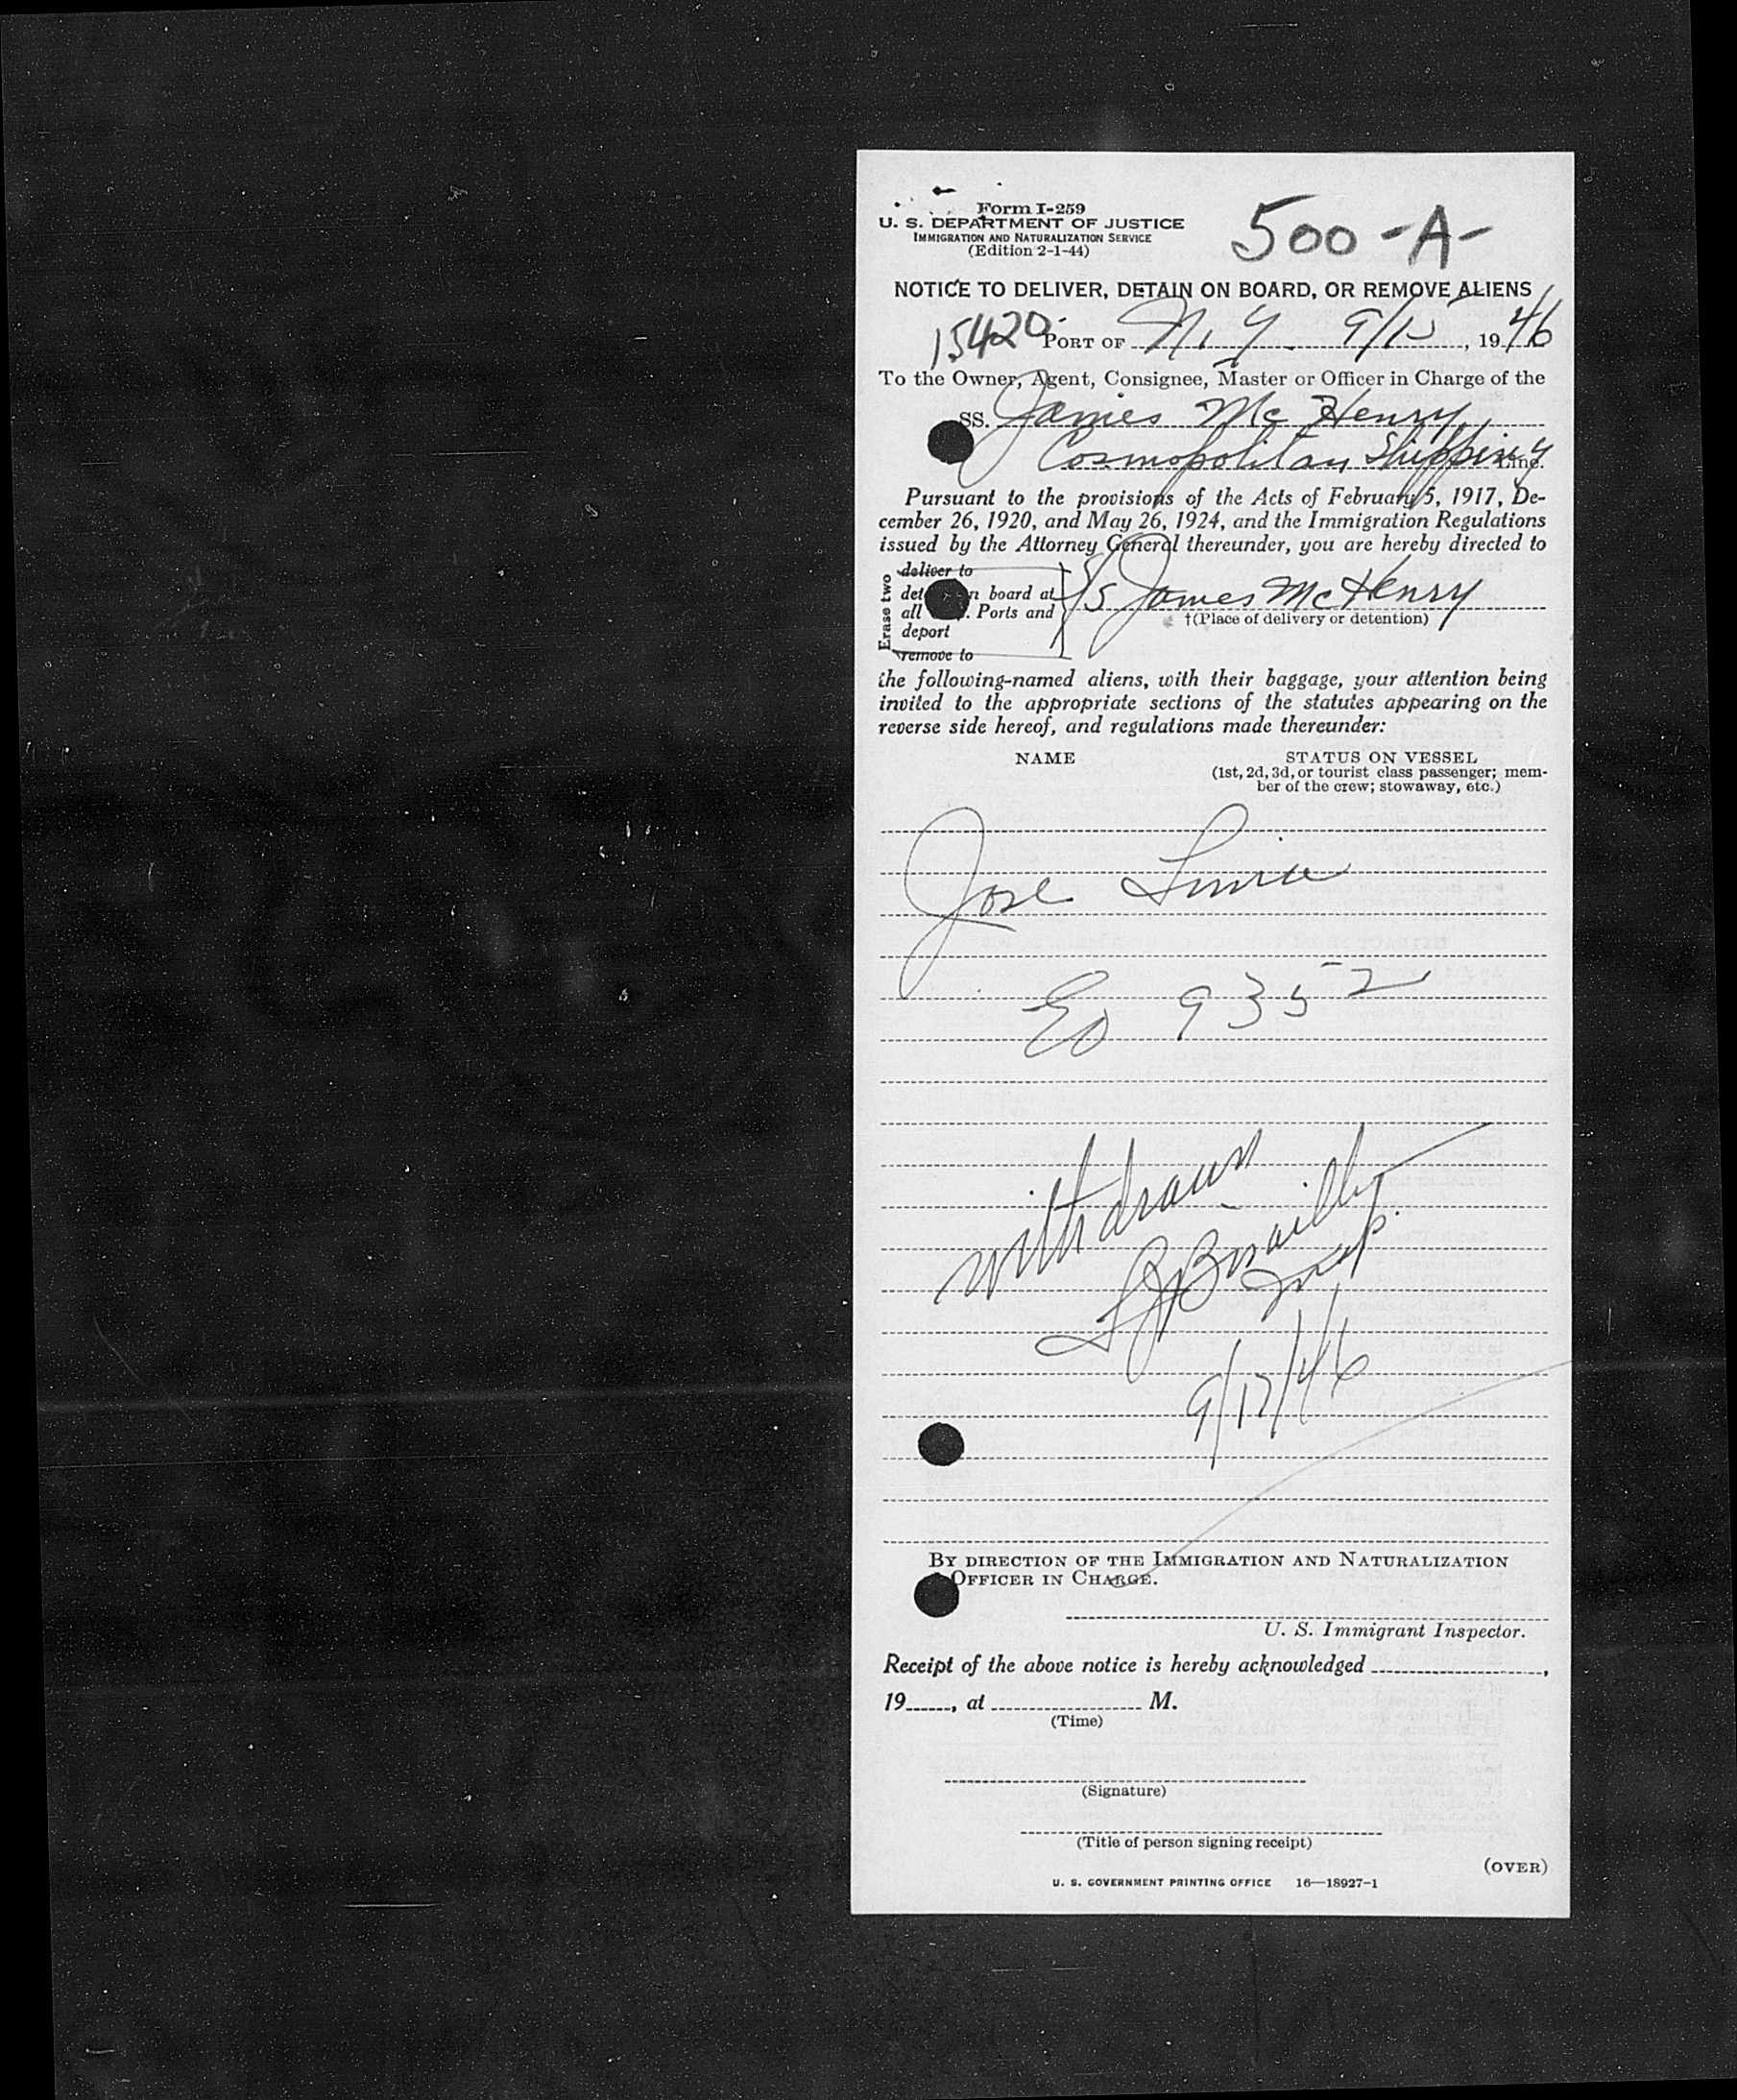 Form I-259
U. S. DEPARTMENT OF JUSTICE
IMMIGRATION AND NATURALIZATION SERVICE
(Edition 2-1-44)
500-A-
NOTICE TO DELIVER, DETAIN ON BOARD, OR REMOVE ALIENS
15420
PORT OF N.Y. 9/15, 1946
To the Owner, Agent, Consignee, Master or Officer in Charge of the
SS. James McHenry
Cosmopolitan Shipping Line.
Pursuant to the provisions of the Acts of February 5, 1917, De-
cember 26, 1920, and May 26, 1924, and the Immigration Regulations
issued by the Attorney General thereunder, you are hereby directed to
Erase two
deliver to
board at
all Ports and
deport
remove to
S/S James McHenry
†(Place of delivery or detention)
the following-named aliens, with their baggage, your attention being
invited to the appropriate sections of the statutes appearing on the
reverse side hereof, and regulations made thereunder:
NAME STATUS ON VESSEL
(1st, 2d, 3d, or tourist class passenger; mem-
ber of the crew; stowaway, etc.)
Jose
Eo 9352
withdrawn
Insp.
9/17/46
BY DIRECTION OF THE IMMIGRATION AND NATURALIZATION
OFFICER IN CHARGE.
U. S. Immigrant Inspector.
Receipt of the above notice is hereby acknowledged ,
19 , at M.
(Time)
(Signature)
(Title of person signing receipt)
(OVER)
U. S. GOVERNMENT PRINTING OFFICE 16—18927-1